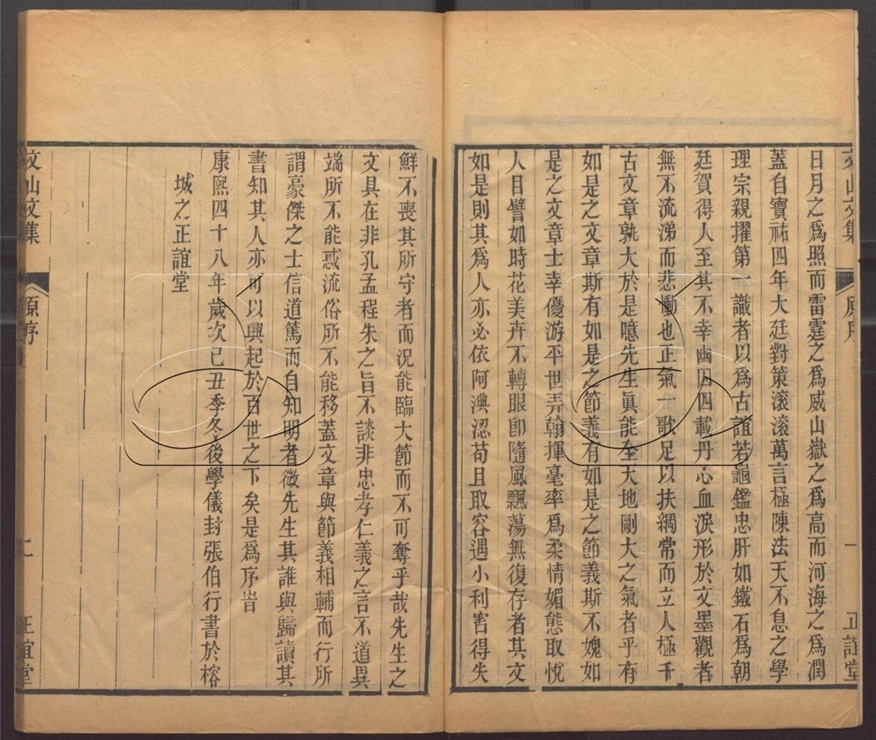 文山文集
原序
一
正誼堂
日月之為照而雷霆之為威山嶽之為高而河海之為潤
蓋自寶祐四年大廷對策滾滾萬言極陳法天不息之學
理宗親擢第一識者以為古誼若龜鑑忠肝如鐵石為朝
廷賀得人至其不幸幽囚四載丹心血淚形於文墨觀者
無不流涕而悲慟也正氣一歌足以扶綱常而立人極千
古文章孰大於是噫先生眞能全天地剛大之氣者乎有
如是之文章斯有如是之節義有如是之節義斯不媿如
是之文章士幸優游平世弄翰揮毫率為柔情媚態取悅
人目譬如時花美卉不轉眼卽隨風飄蕩無復存者其文
如是則其為人亦必依阿澳涊苟且取容遇小利害得失
鮮不喪其所守者而況能臨大節而不可奪乎哉先生之
文具在非孔孟程朱之旨不談非忠孝仁義之言不道異
端所不能惑流俗所不能移蓋文章與節義相輔而行所
謂豪傑之士信道篤而自知明者微先生其誰與歸讀其
書知其人亦可以興起於百世之下矣是為序旹
康熙四十八年歲次己丑季冬後學儀封張伯行書於榕
城之正誼堂
文山文集
原序
二
正誼堂